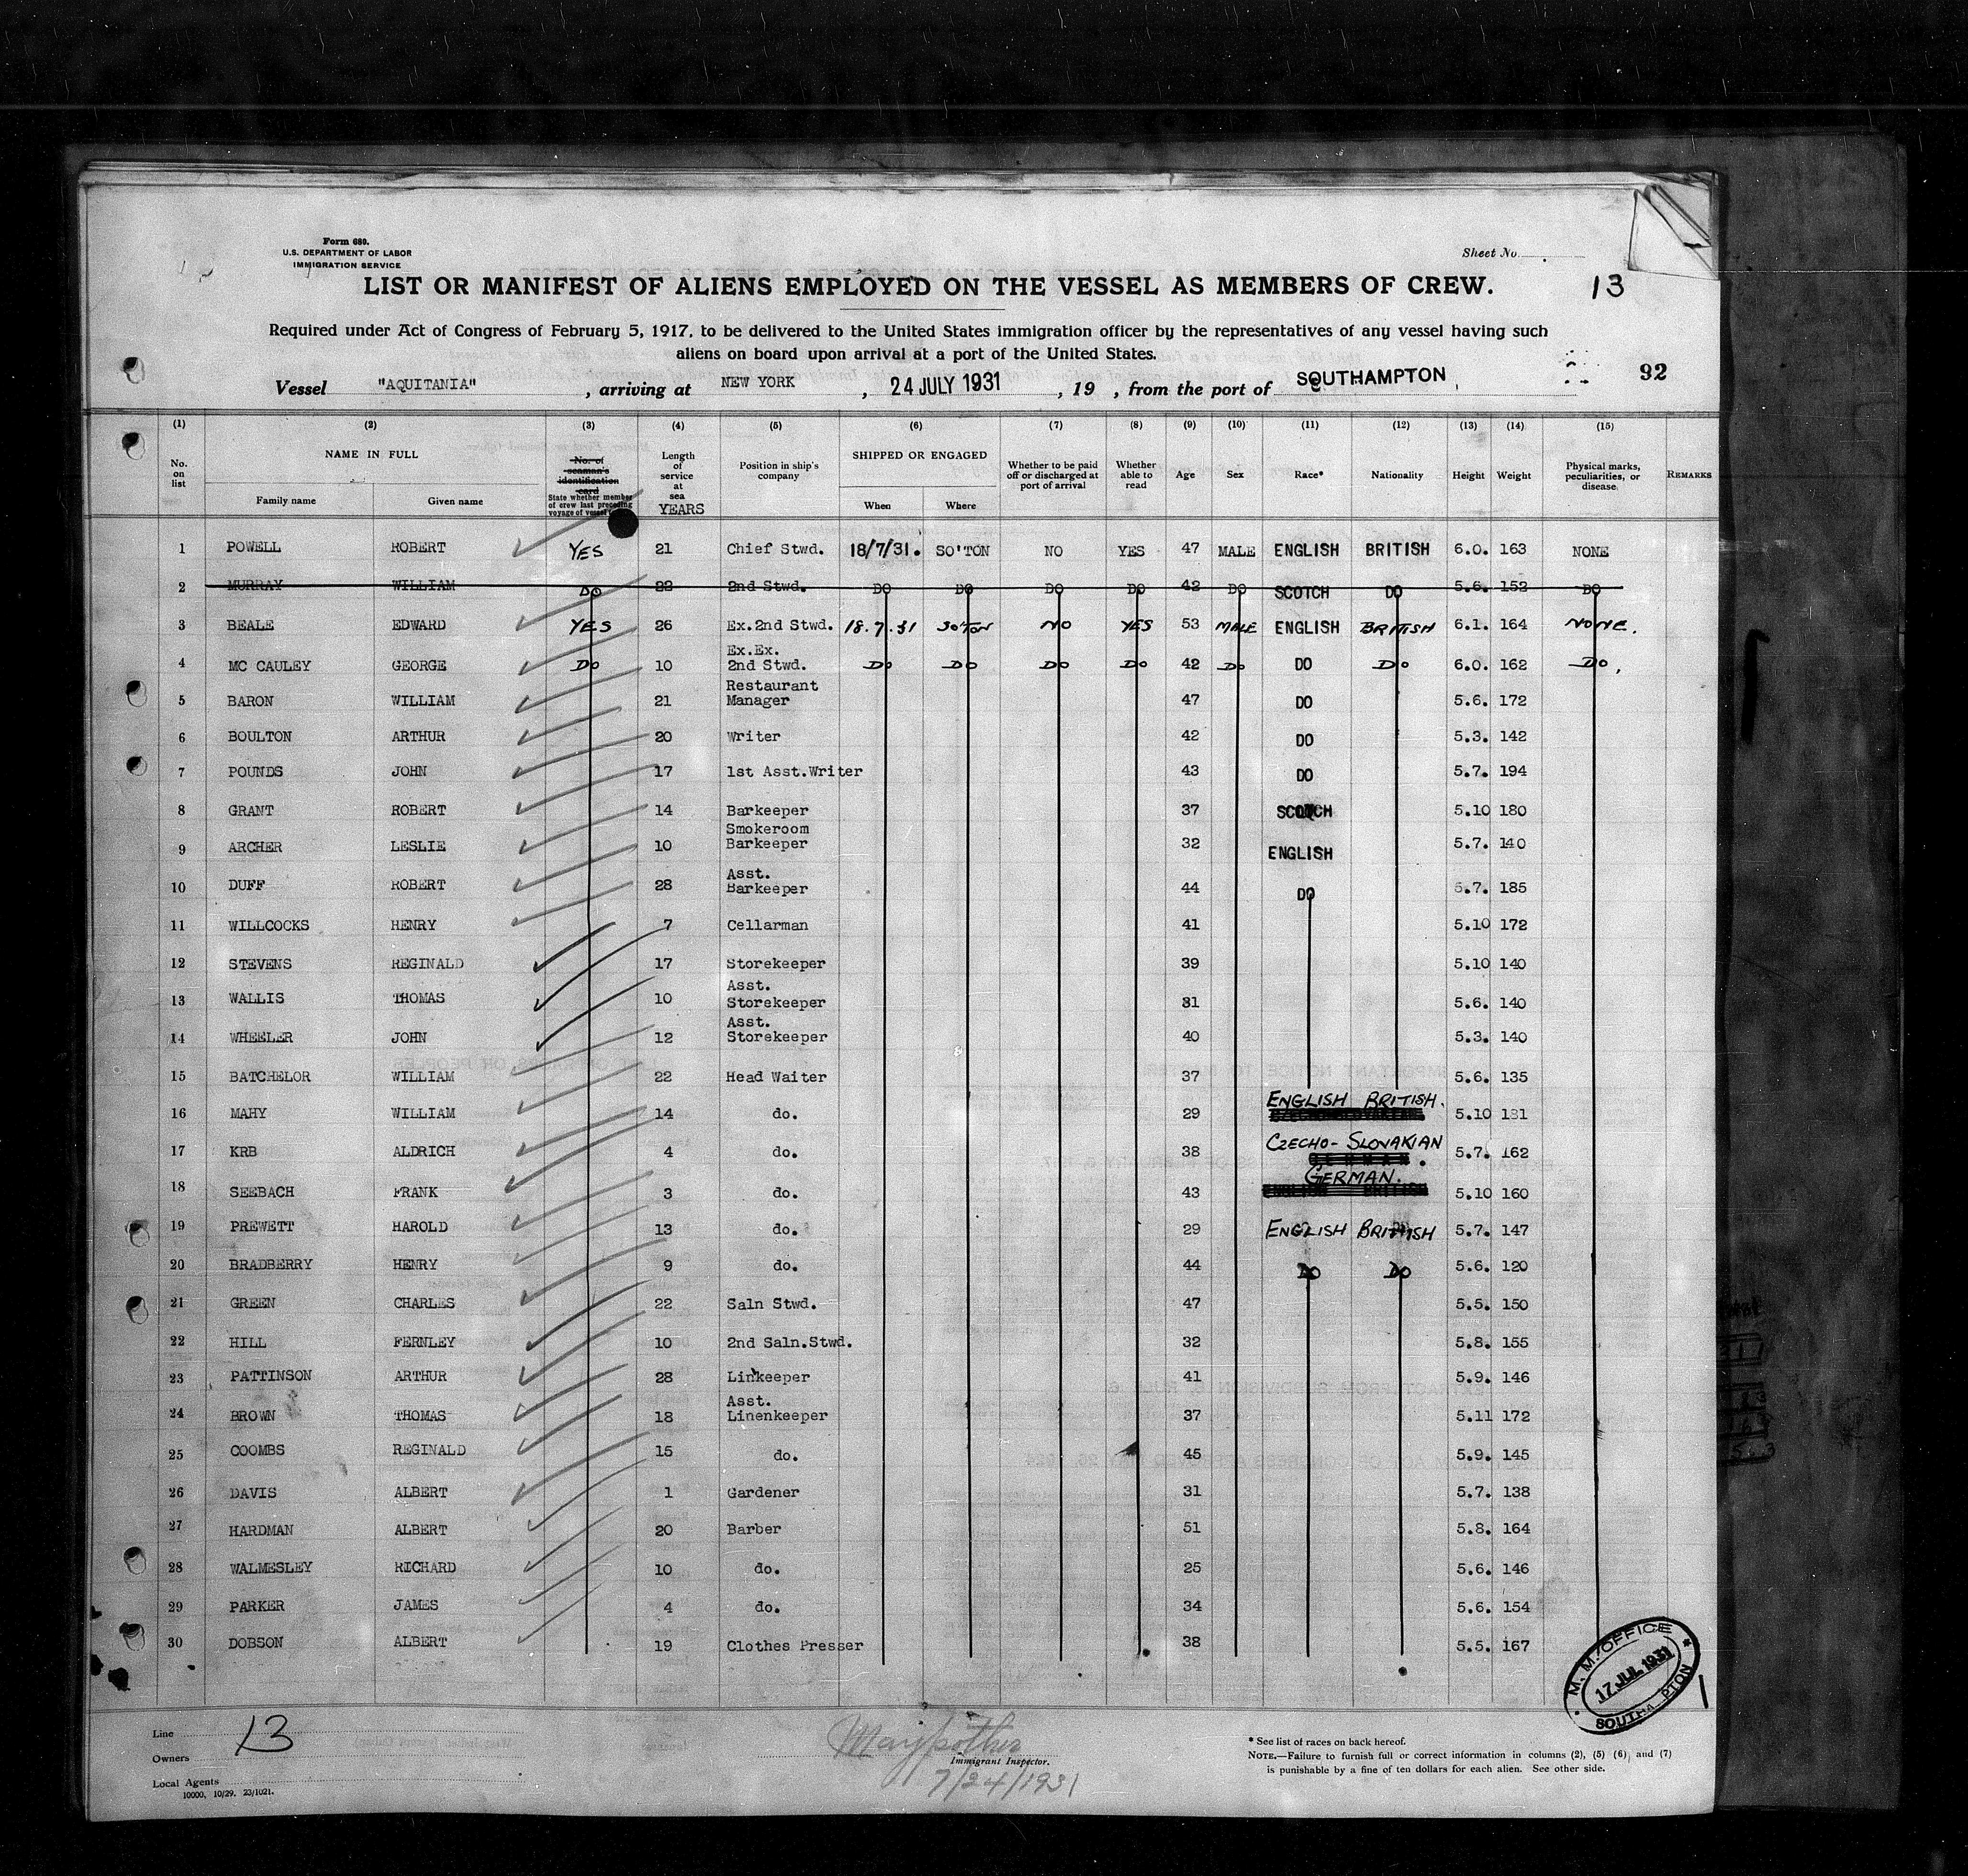 Form 680.
U.S. DEPARTMENT OF LABOR
IMMIGRATION SERVICE
Sheet No.
LIST OR MANIFEST OF ALIENS EMPLOYED ON THE VESSEL AS MEMBERS OF CREW.
13
Required under Act of Congress of February 5, 1917, to be delivered to the United States immigration officer by the representatives of any vessel having such
aliens on board upon arrival at a port of the United States.
92
Vessel "AQUITANIA", arriving at NEW YORK, 24 JULY 1931, 19 , from the port of SOUTHAMPTON
(1) (2) (3) (4) (5) (6) (7) (8) (9) (10) (11) (12) (13) (14) (15)
No. on list
NAME IN FULL
Family name Given name
No. of seaman's identification card
State whether member of crew last preceding voyage of vessel
Length of service at sea YEARS
Position in ship's company
SHIPPED OR ENGAGED
When Where
Whether to be paid off or discharged at port of arrival
Whether able to read
Age Sex Race* Nationality Height Weight
Physical marks, peculiarities, or disease
REMARKS
1 POWELL ROBERT YES 21 Chief Stwd. 18/7/31. SO'TON NO YES 47 MALE ENGLISH BRITISH 6.0. 163 NONE
2 MURRAY WILLIAM DO 22 2nd Stwd. DO DO DO DO 42 DO SCOTCH DO 5.6. 152 DO
3 BEALE EDWARD YES 26 Ex.2nd Stwd. 18.7.31 SO'TON NO YES 53 MALE ENGLISH BRITISH 6.1. 164 NONE.
4 MC CAULEY GEORGE DO 10 Ex.Ex. 2nd Stwd. DO DO DO DO 42 DO DO DO 6.0. 162 DO,
5 BARON WILLIAM 21 Restaurant Manager 47 DO 5.6. 172
6 BOULTON ARTHUR 20 Writer 42 DO 5.3. 142
7 POUNDS JOHN 17 1st Asst.Writer 43 DO 5.7. 194
8 GRANT ROBERT 14 Barkeeper 37 SCOTCH 5.10 180
9 ARCHER LESLIE 10 Smokeroom Barkeeper 32 ENGLISH 5.7. 140
10 DUFF ROBERT 28 Asst. Barkeeper 44 DO 5.7. 185
11 WILLCOCKS HENRY 7 Cellarman 41 5.10 172
12 STEVENS REGINALD 17 Storekeeper 39 5.10 140
13 WALLIS THOMAS 10 Asst. Storekeeper 31 5.6. 140
14 WHEELER JOHN 12 Asst. Storekeeper 40 5.3. 140
15 BATCHELOR WILLIAM 22 Head Waiter 37 5.6. 135
16 MAHY WILLIAM 14 do. 29 ENGLISH BRITISH. 5.10 131
17 KRB ALDRICH 4 do. 38 CZECHO-SLOVAKIAN 5.7. 162
18 SEEBACH FRANK 3 do. 43 GERMAN. 5.10 160
19 PREWETT HAROLD 13 do. 29 ENGLISH BRITISH 5.7. 147
20 BRADBERRY HENRY 9 do. 44 DO DO 5.6. 120
21 GREEN CHARLES 22 Saln Stwd. 47 5.5. 150
22 HILL FERNLEY 10 2nd Saln.Stwd. 32 5.8. 155
23 PATTINSON ARTHUR 28 Linkeeper 41 5.9. 146
24 BROWN THOMAS 18 Asst. Linenkeeper 37 5.11 172
25 COOMBS REGINALD 15 do. 45 5.9. 145
26 DAVIS ALBERT 1 Gardener 31 5.7. 138
27 HARDMAN ALBERT 20 Barber 51 5.8. 164
28 WALMESLEY RICHARD 10 do. 25 5.6. 146
29 PARKER JAMES 4 do. 34 5.6. 154
30 DOBSON ALBERT 19 Clothes Presser 38 5.5. 167
M.M. OFFICE
17 JUL 1931
Line
Owners
13
Local Agents
10000, 10/29. 23/1021.
Immigrant Inspector.
7/24/1931
* See list of races on back hereof.
NOTE.—Failure to furnish full or correct information in columns (2), (5) (6), and (7)
is punishable by a fine of ten dollars for each alien. See other side.